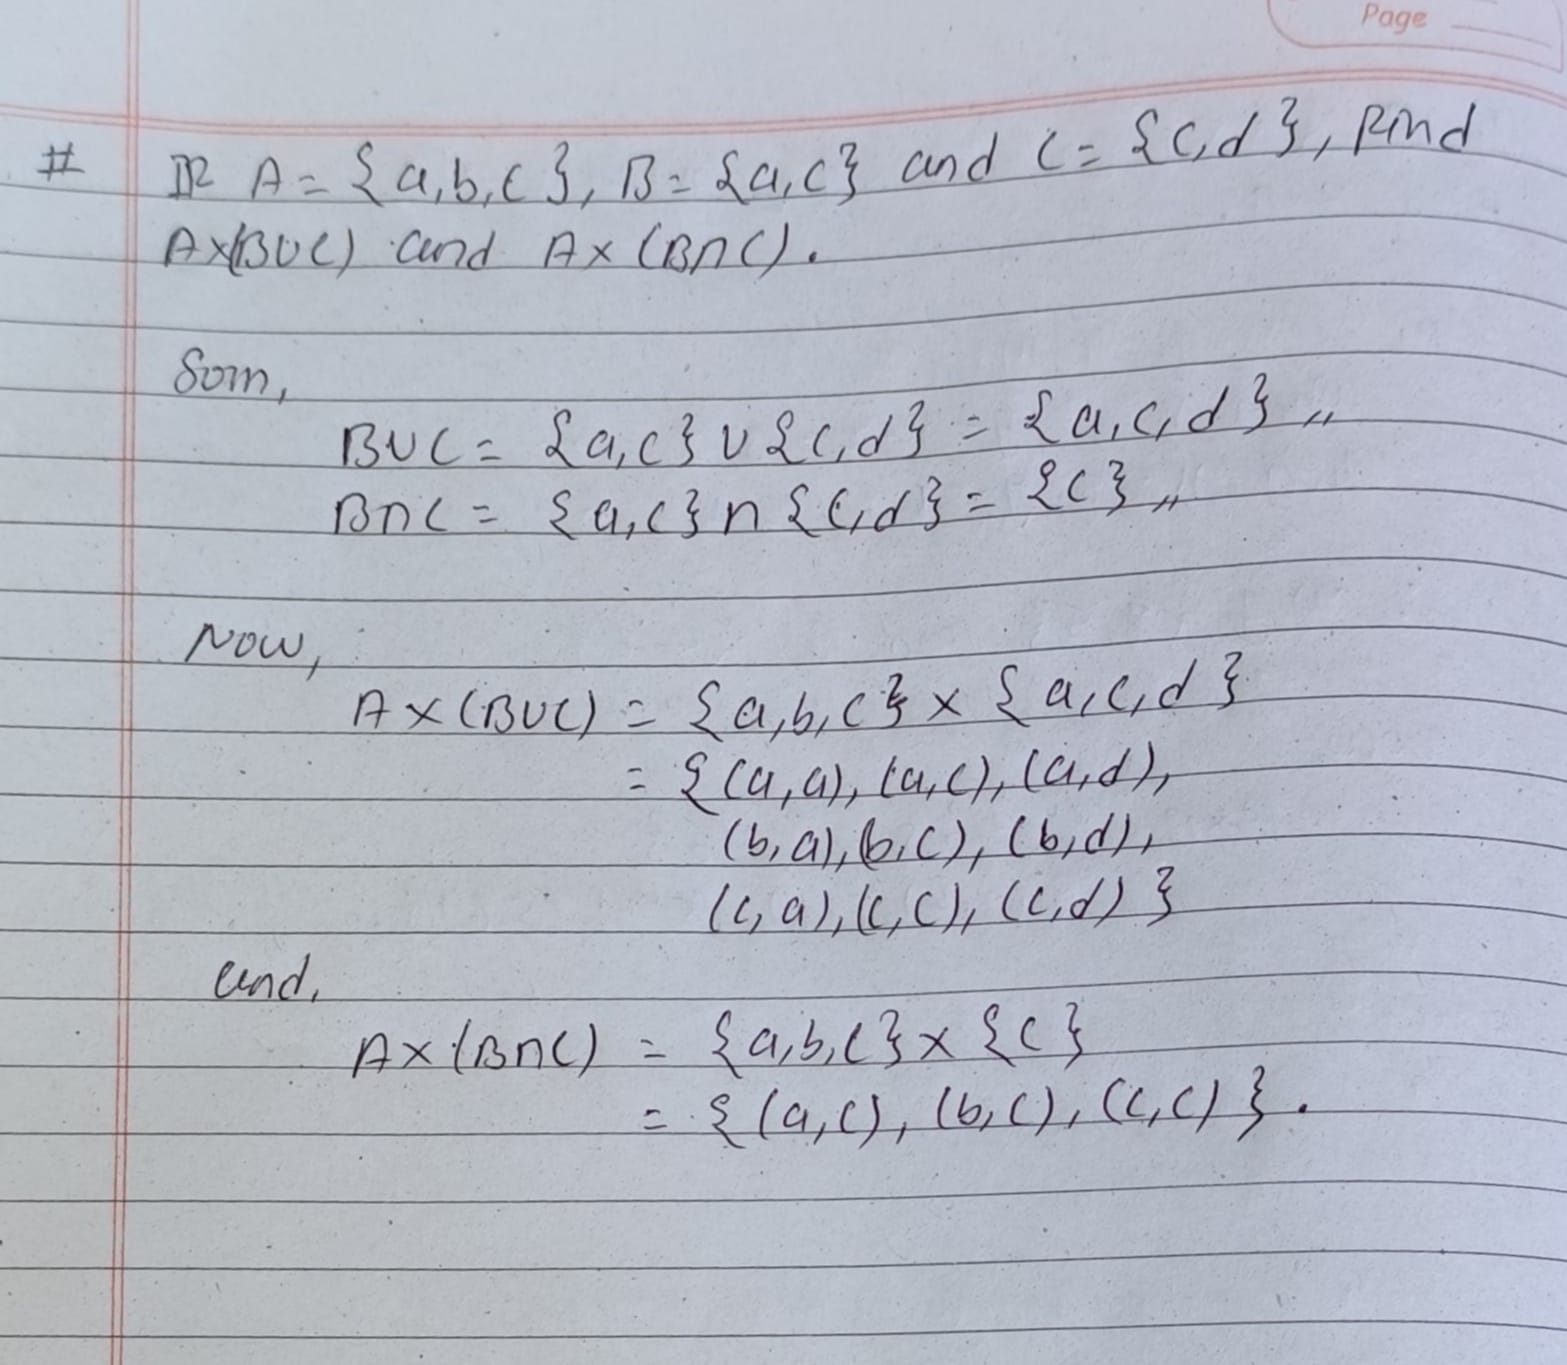 Page
# If A = {a,b,c}, B = {a,c} and C = {c,d}, Find
A×(B∪C) and A × (B∩C).
Soln,
B∪C = {a,c} ∪ {c,d} = {a,c,d} ,,
B∩C = {a,c} ∩ {c,d} = {c} ,,
Now,
A × (B∪C) = {a,b,c} × {a,c,d}
= {(a,a), (a,c), (a,d),
(b,a), (b,c), (b,d),
(c,a), (c,c), (c,d) }
and,
A × (B∩C) = {a,b,c} × {c}
= {(a,c), (b,c), (c,c) }.